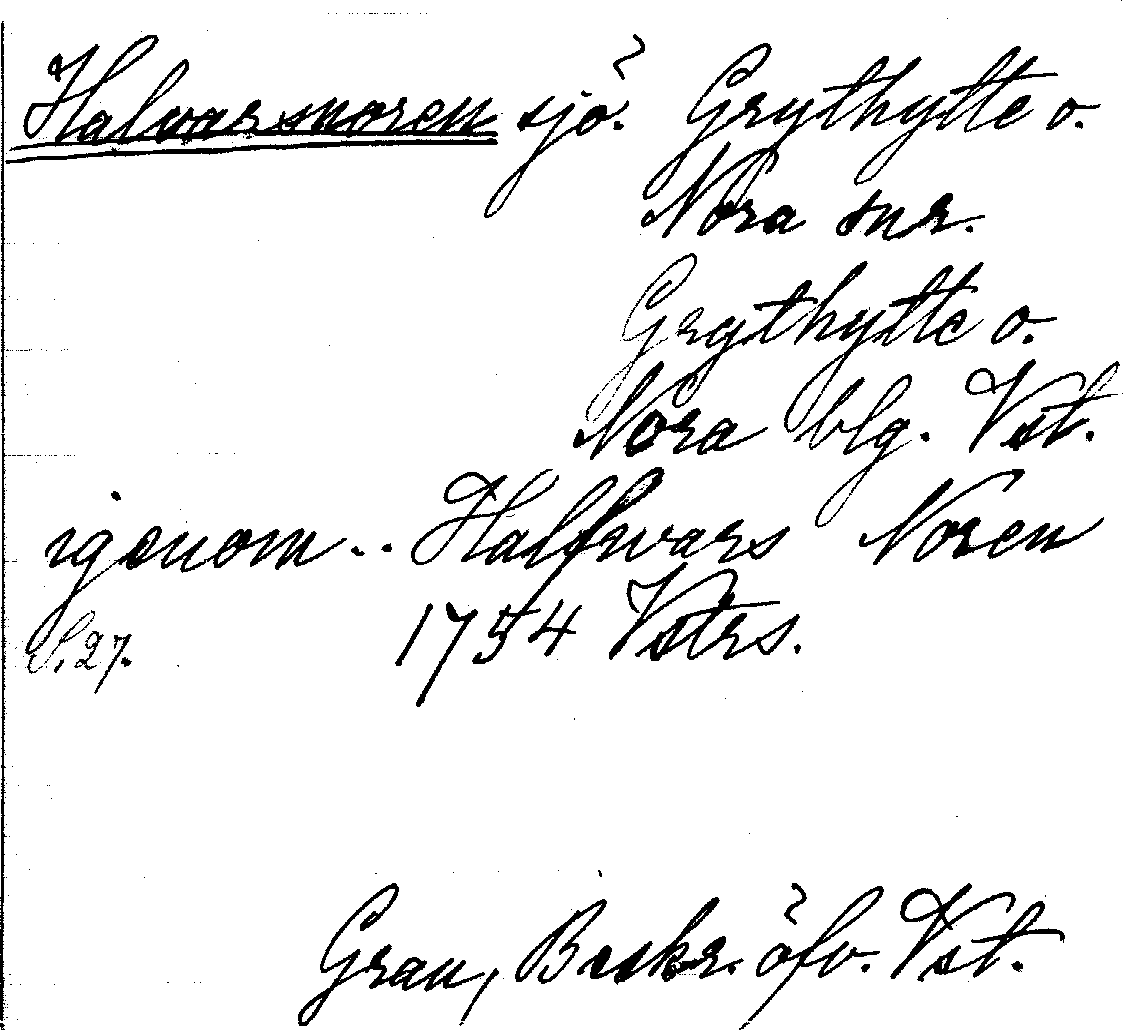 Halvarsnoren sjö. Grythytte o.
Nora snr.
Grythytte o.
Nora blg. Vst.
igenom .. Halfwars Noren
S. 27. 1754 Vstrs.
Grau, Beskr. öfv. Vst.